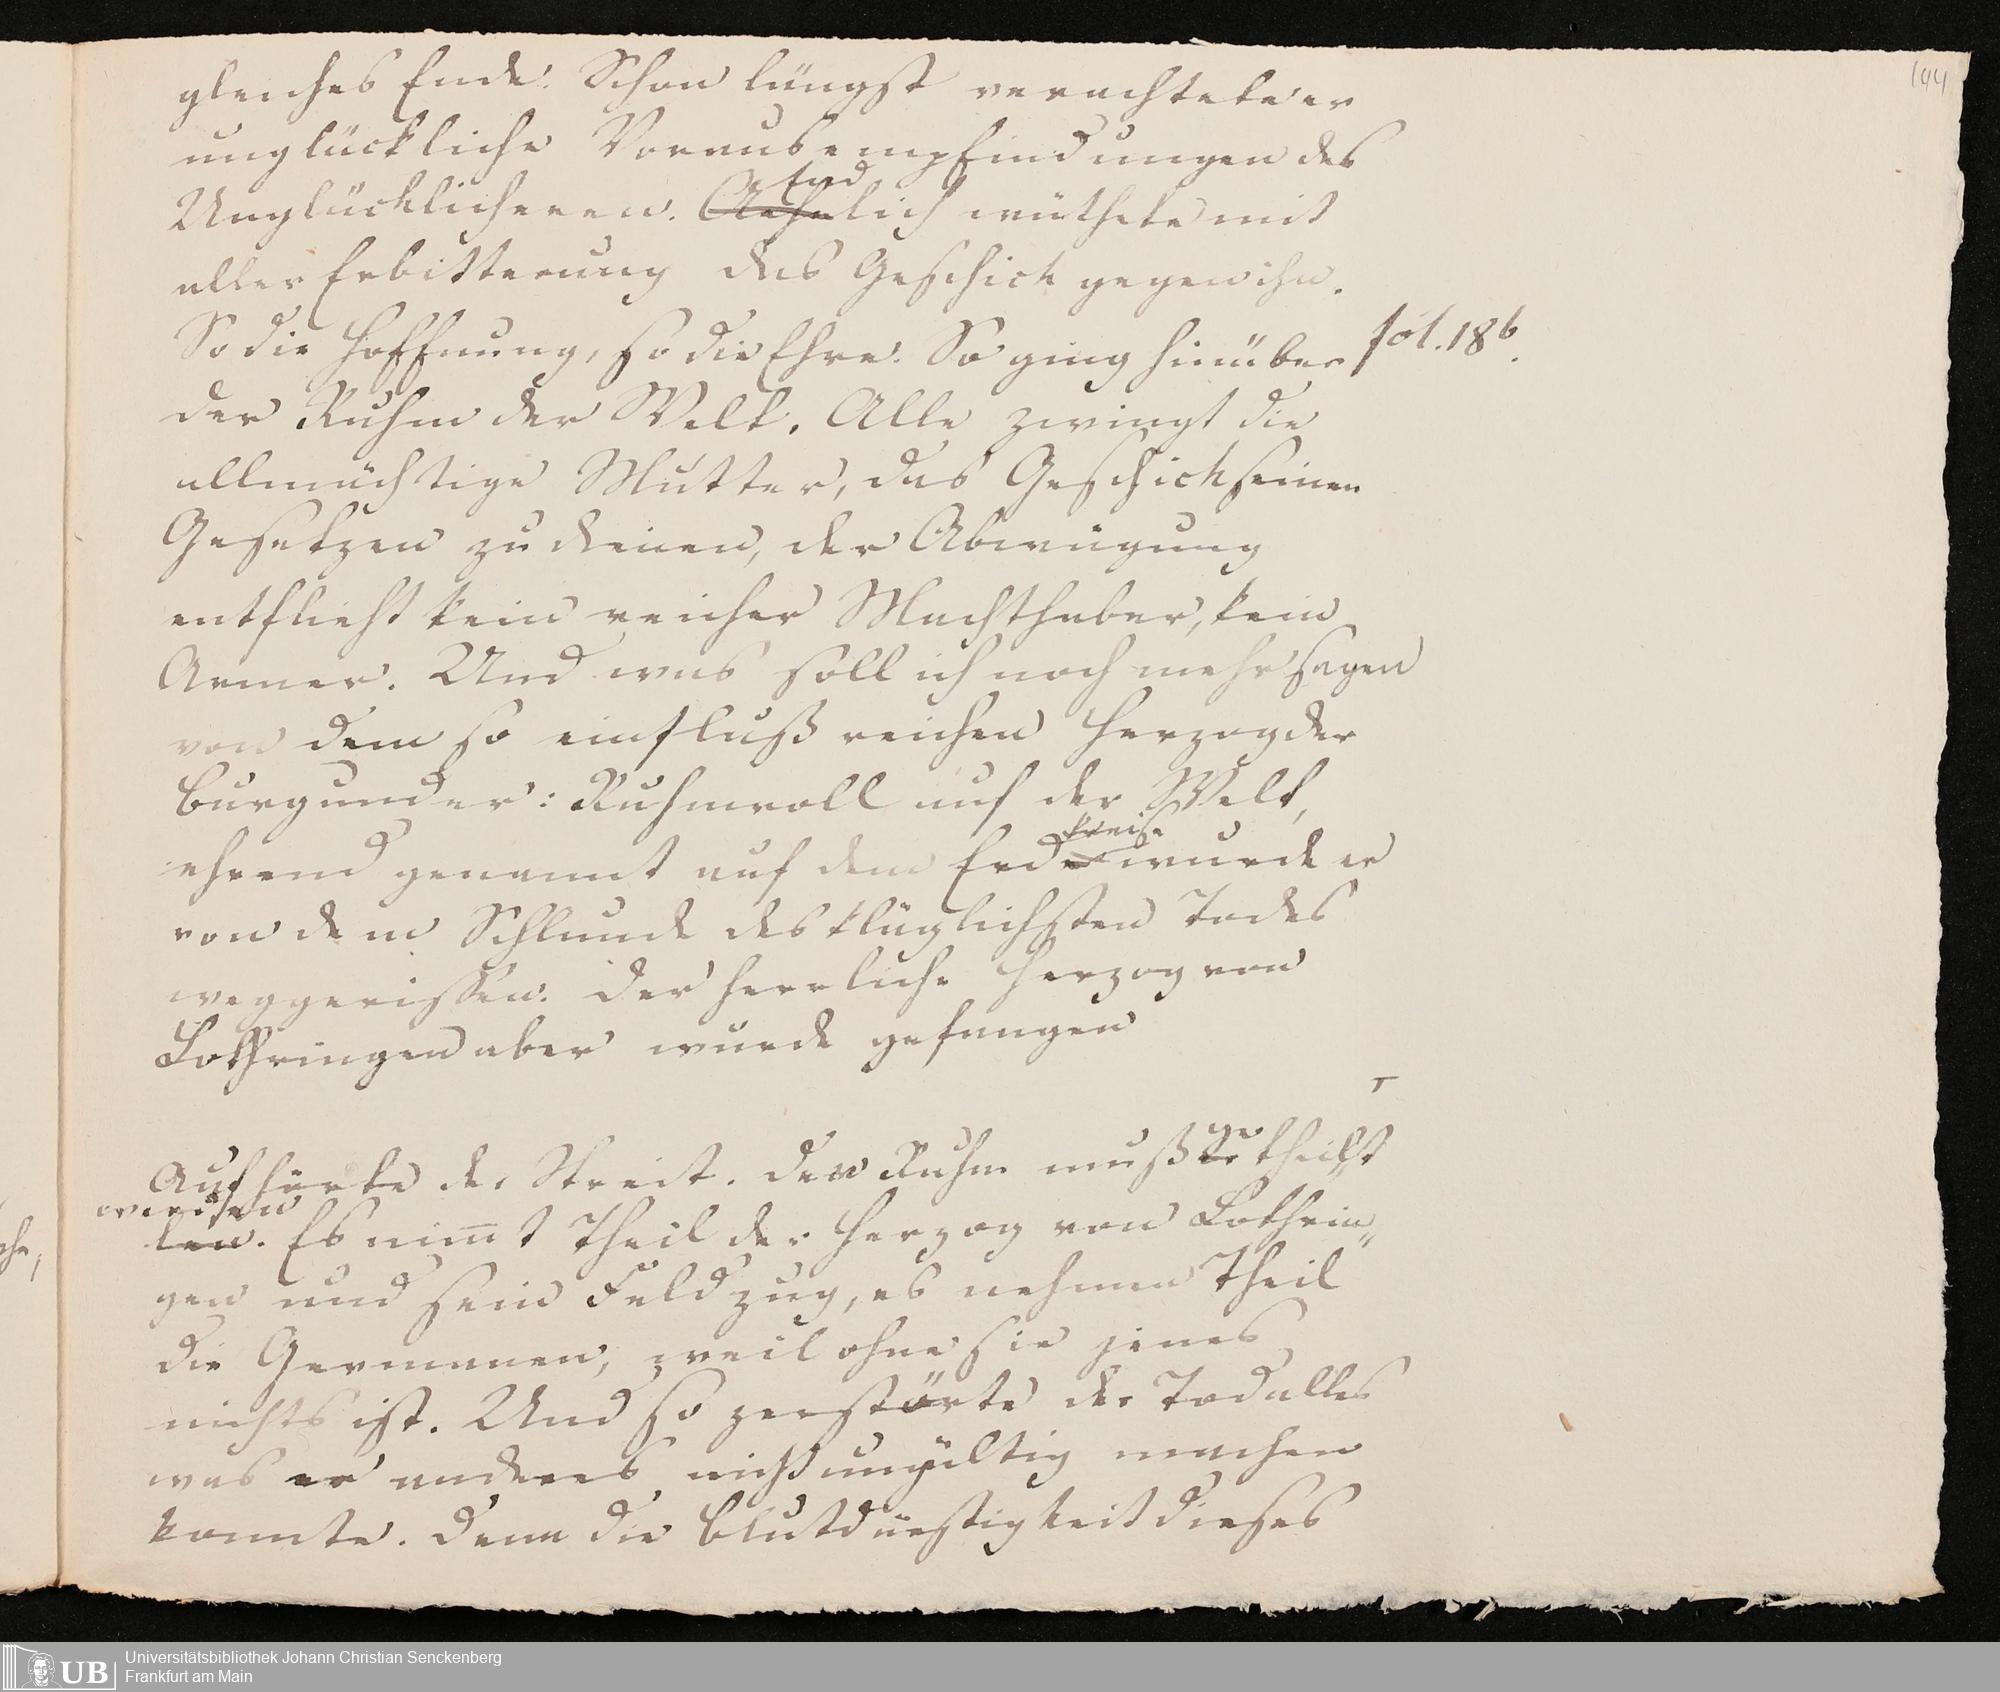 144
gleiches Ende. Schon längst verachtete er
unglückliche Vorausempfindungen des
Unglücklicheren. Aehnlich wüthete mit
End
aller Erbitterung das Geschick gegen ihn.
So die Hoffnung, so die Ehre. So ging hinüber fol. 18b.
der Ruhm der Welt. Alle zwingt die
allmächtige Mutter, das Geschick seinen
Gesetzen zu dienen, der Abwägung
entflieht kein reicher Machthaber, kein
Armer. Und was soll ich noch mehr sagen
von dem so einflußreichen Herzog der
Burgunder: Ruhmvoll auf der Welt,
kreise
ehrend genannt auf dem Erde wurde er
von dem Schlunde des kläglichsten Todes
weggerissen. Der herrliche Herzog von
Lothringen aber wurde gefangen
ge
Aufhörte der Streit. Den Ruhm muß er theilst
werden
len. Es nim̄t Theil der Herzog von Lothrin„
gen und sein Feldzug, es nehmen Theil
die Germanen, weil ohne sie jenes
nichts ist. Und so zerstörte der Tod alles
was er anders nicht ungültig machen
konnte. Denn die Blutdürstigkeit dieses
Universitätsbibliothek Johann Christian Senckenberg
Frankfurt am Main
UB